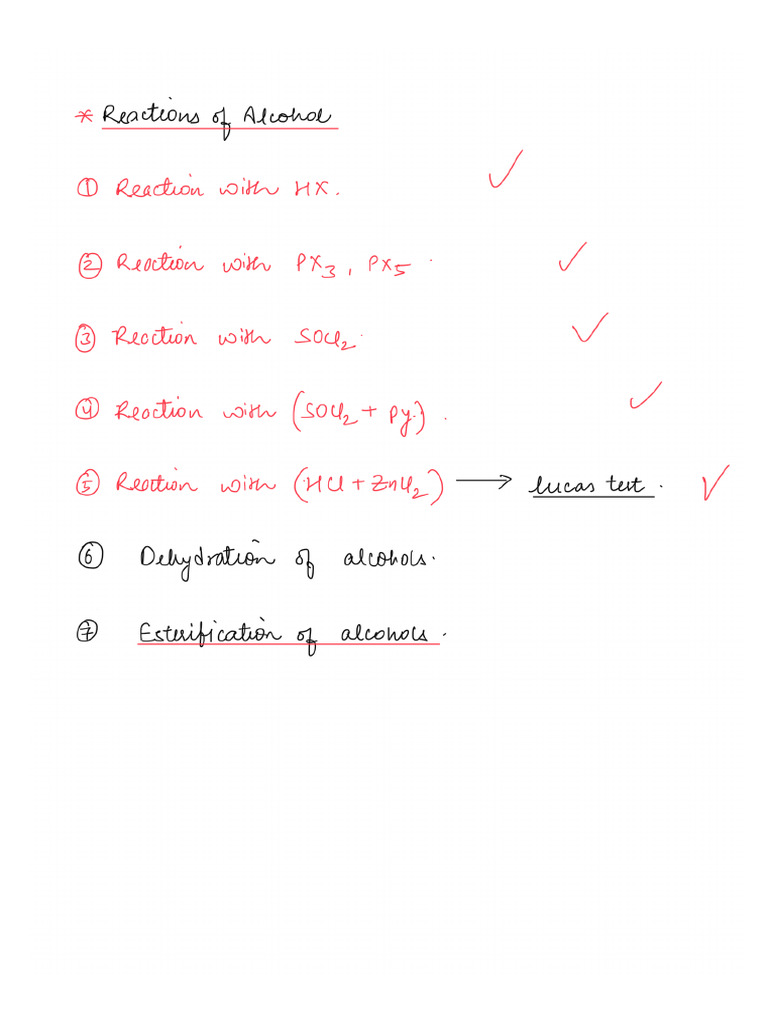 * Reactions of Alcohol
① Reaction with HX. ✓
② Reaction with PX₃, PX₅. ✓
③ Reaction with SOCl₂. ✓
④ Reaction with (SOCl₂ + Py.). ✓
⑤ Reaction with (HCl + ZnCl₂) → lucas test. ✓
⑥ Dehydration of alcohols.
⑦ Esterification of alcohols.